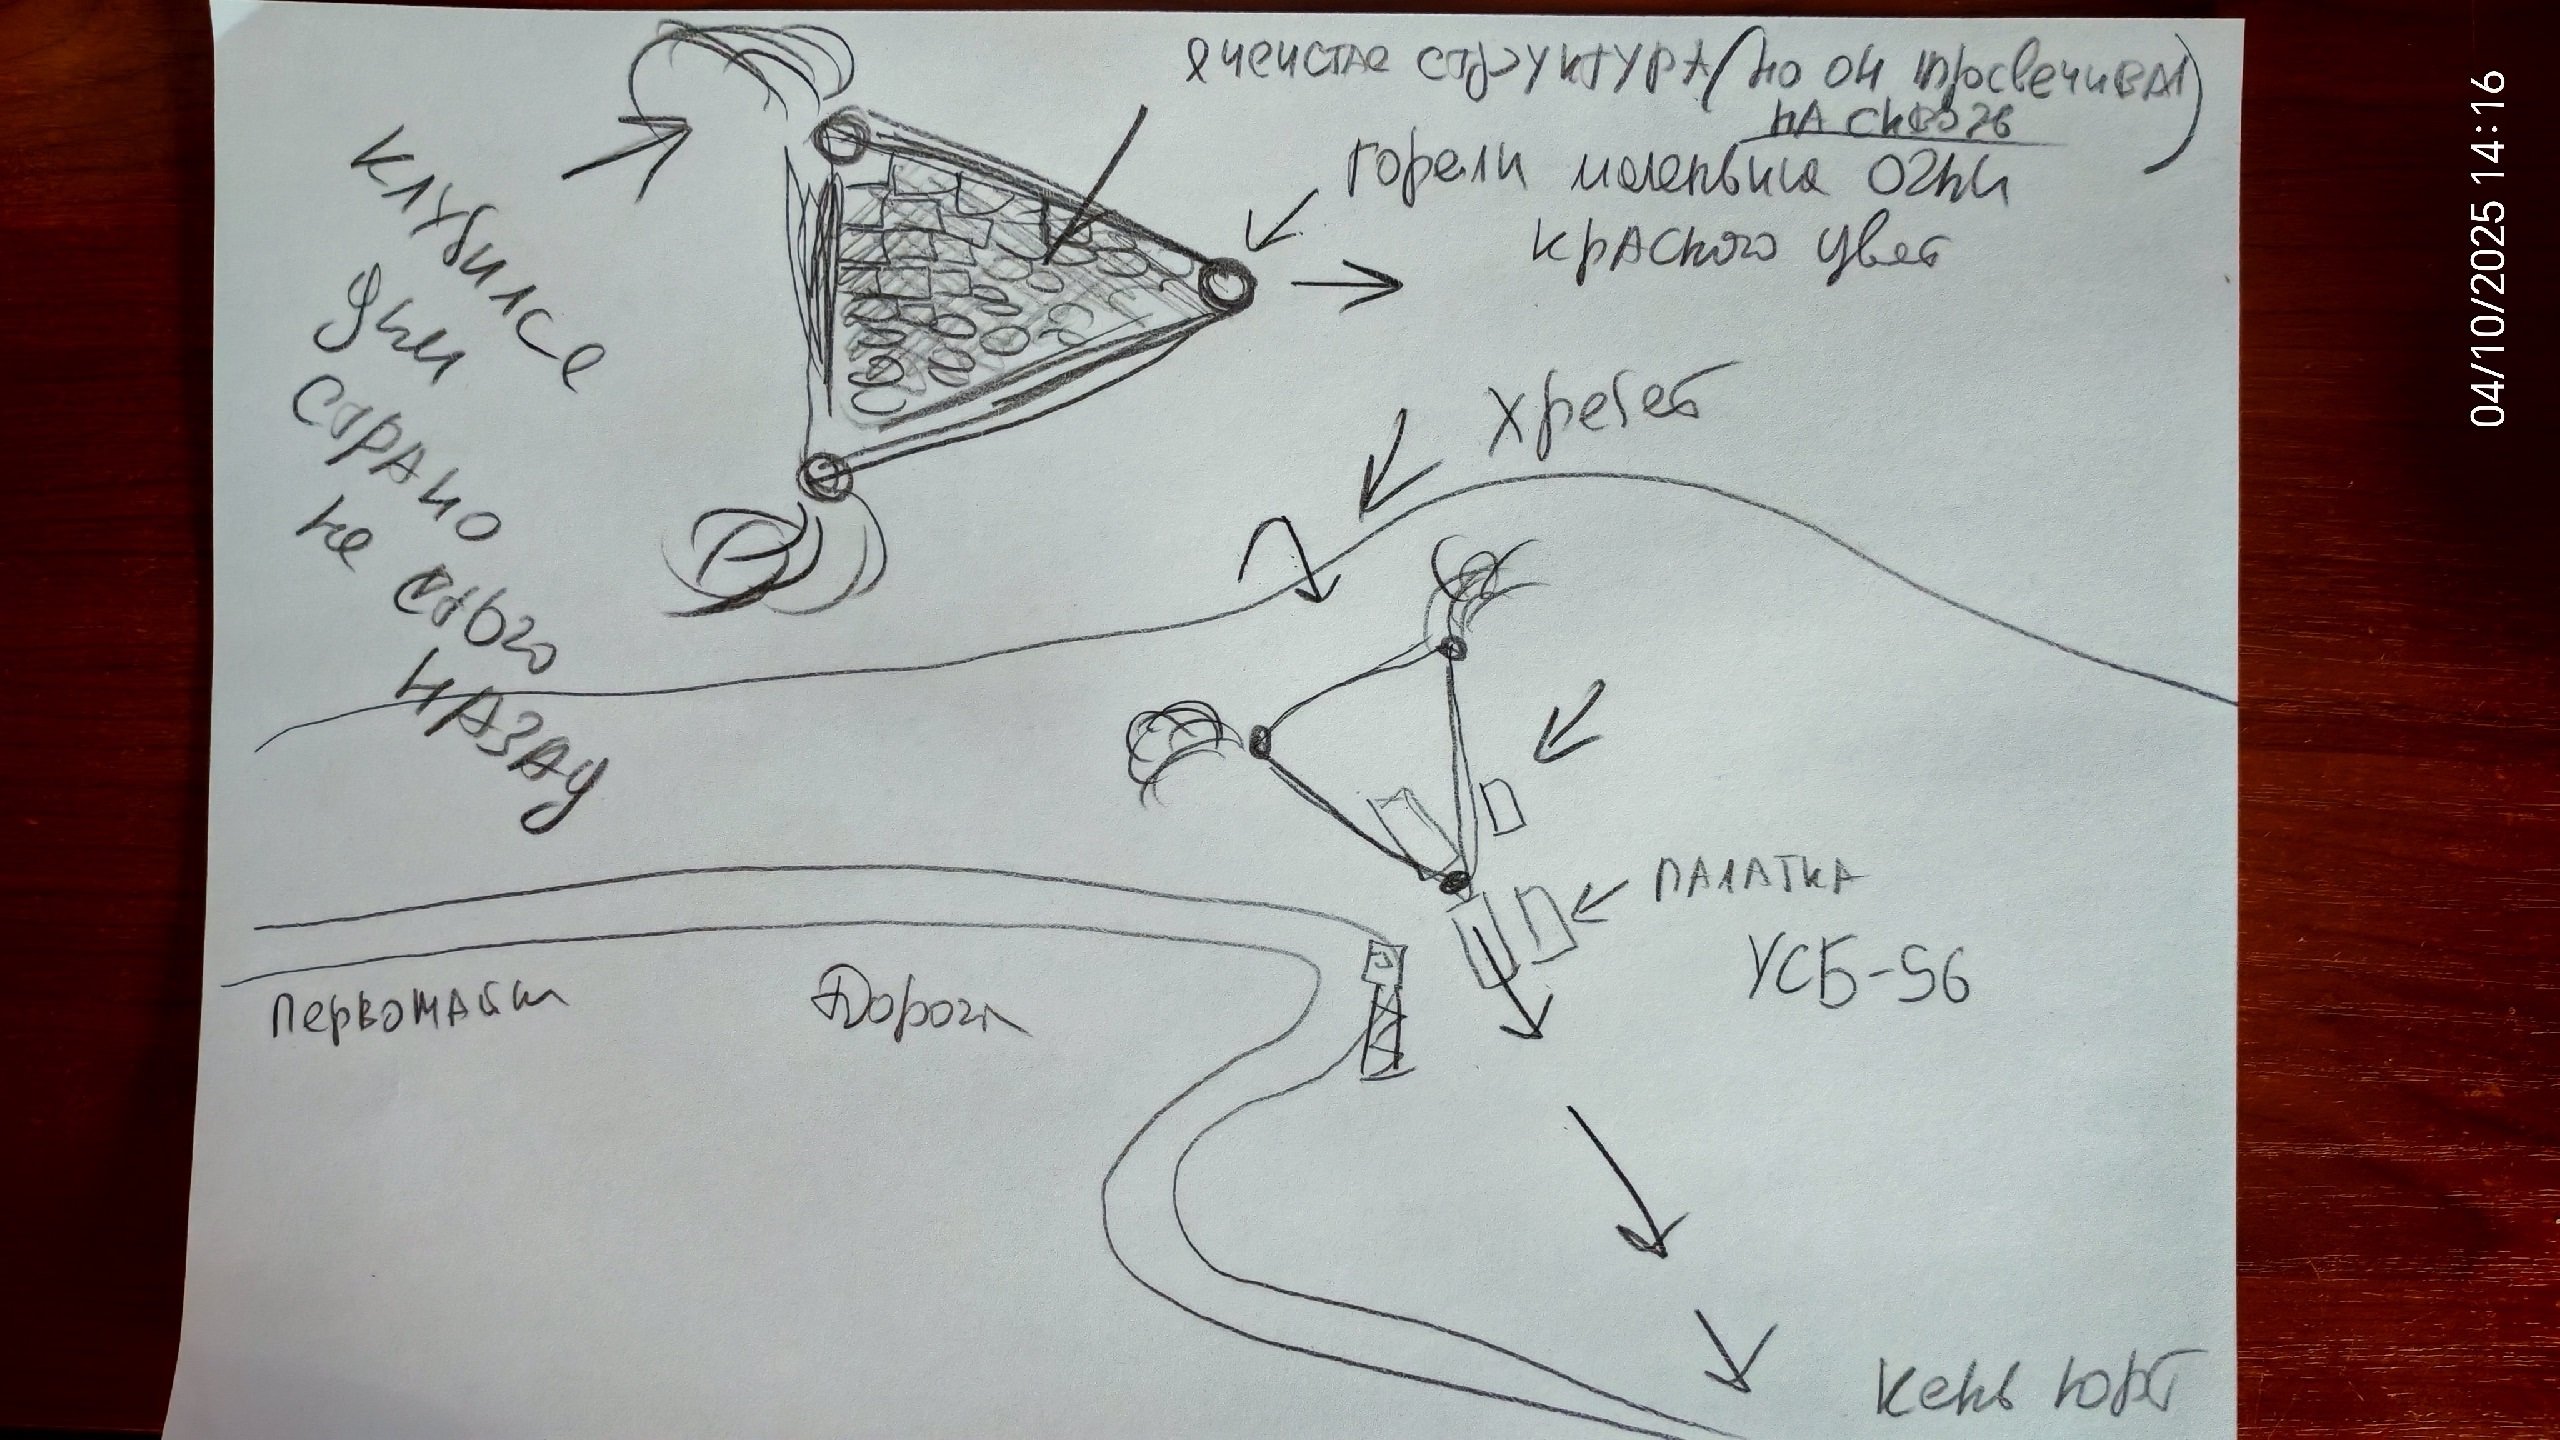 ячеистае структурА (но он просвечивАл
нА сквозь)
горели маленькие огни
крАсного цвет
клубилсе
дым
стрАно
не сього
НАЗАД
хребет
ПАЛАТКА
УСБ-56
первомАйск
Дорога
Кень юрт
04/10/2025 14:16